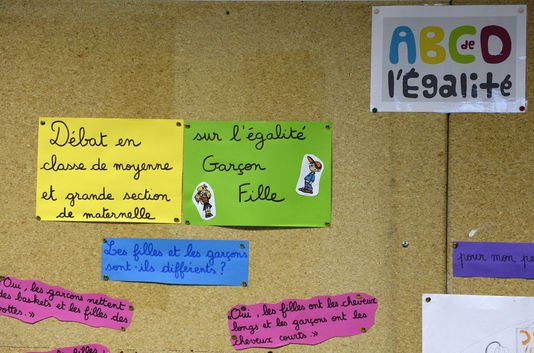 ABC de D
l'Égalité
Débat en
classe de moyenne
et grande section
de maternelle
sur l'égalité
Garçon
Fille
Les filles et les garçons
sont-ils différents ?
pour mon pe
Oui, les garçons mettent
des baskets et les filles des
ottes. »
« Oui, les filles ont les cheveux
longs et les garçons ont les
cheveux courts. »
les filles